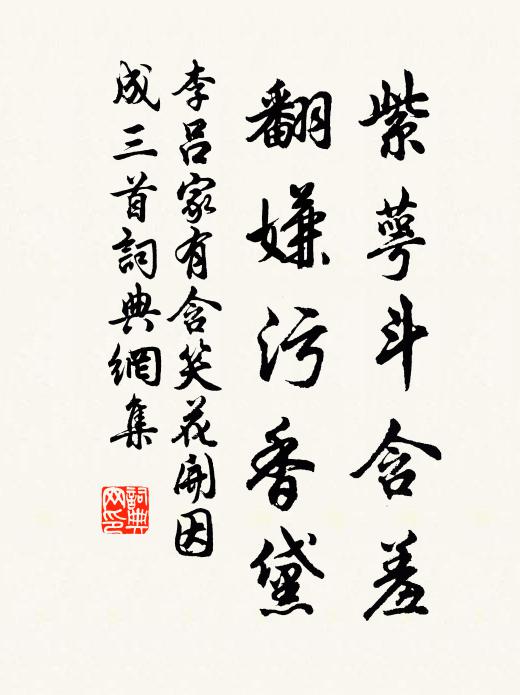 紫萼斗含羞
翻嫌污香黛
李吕家有含笑花開因
成三首詞典網集
詞典
网印